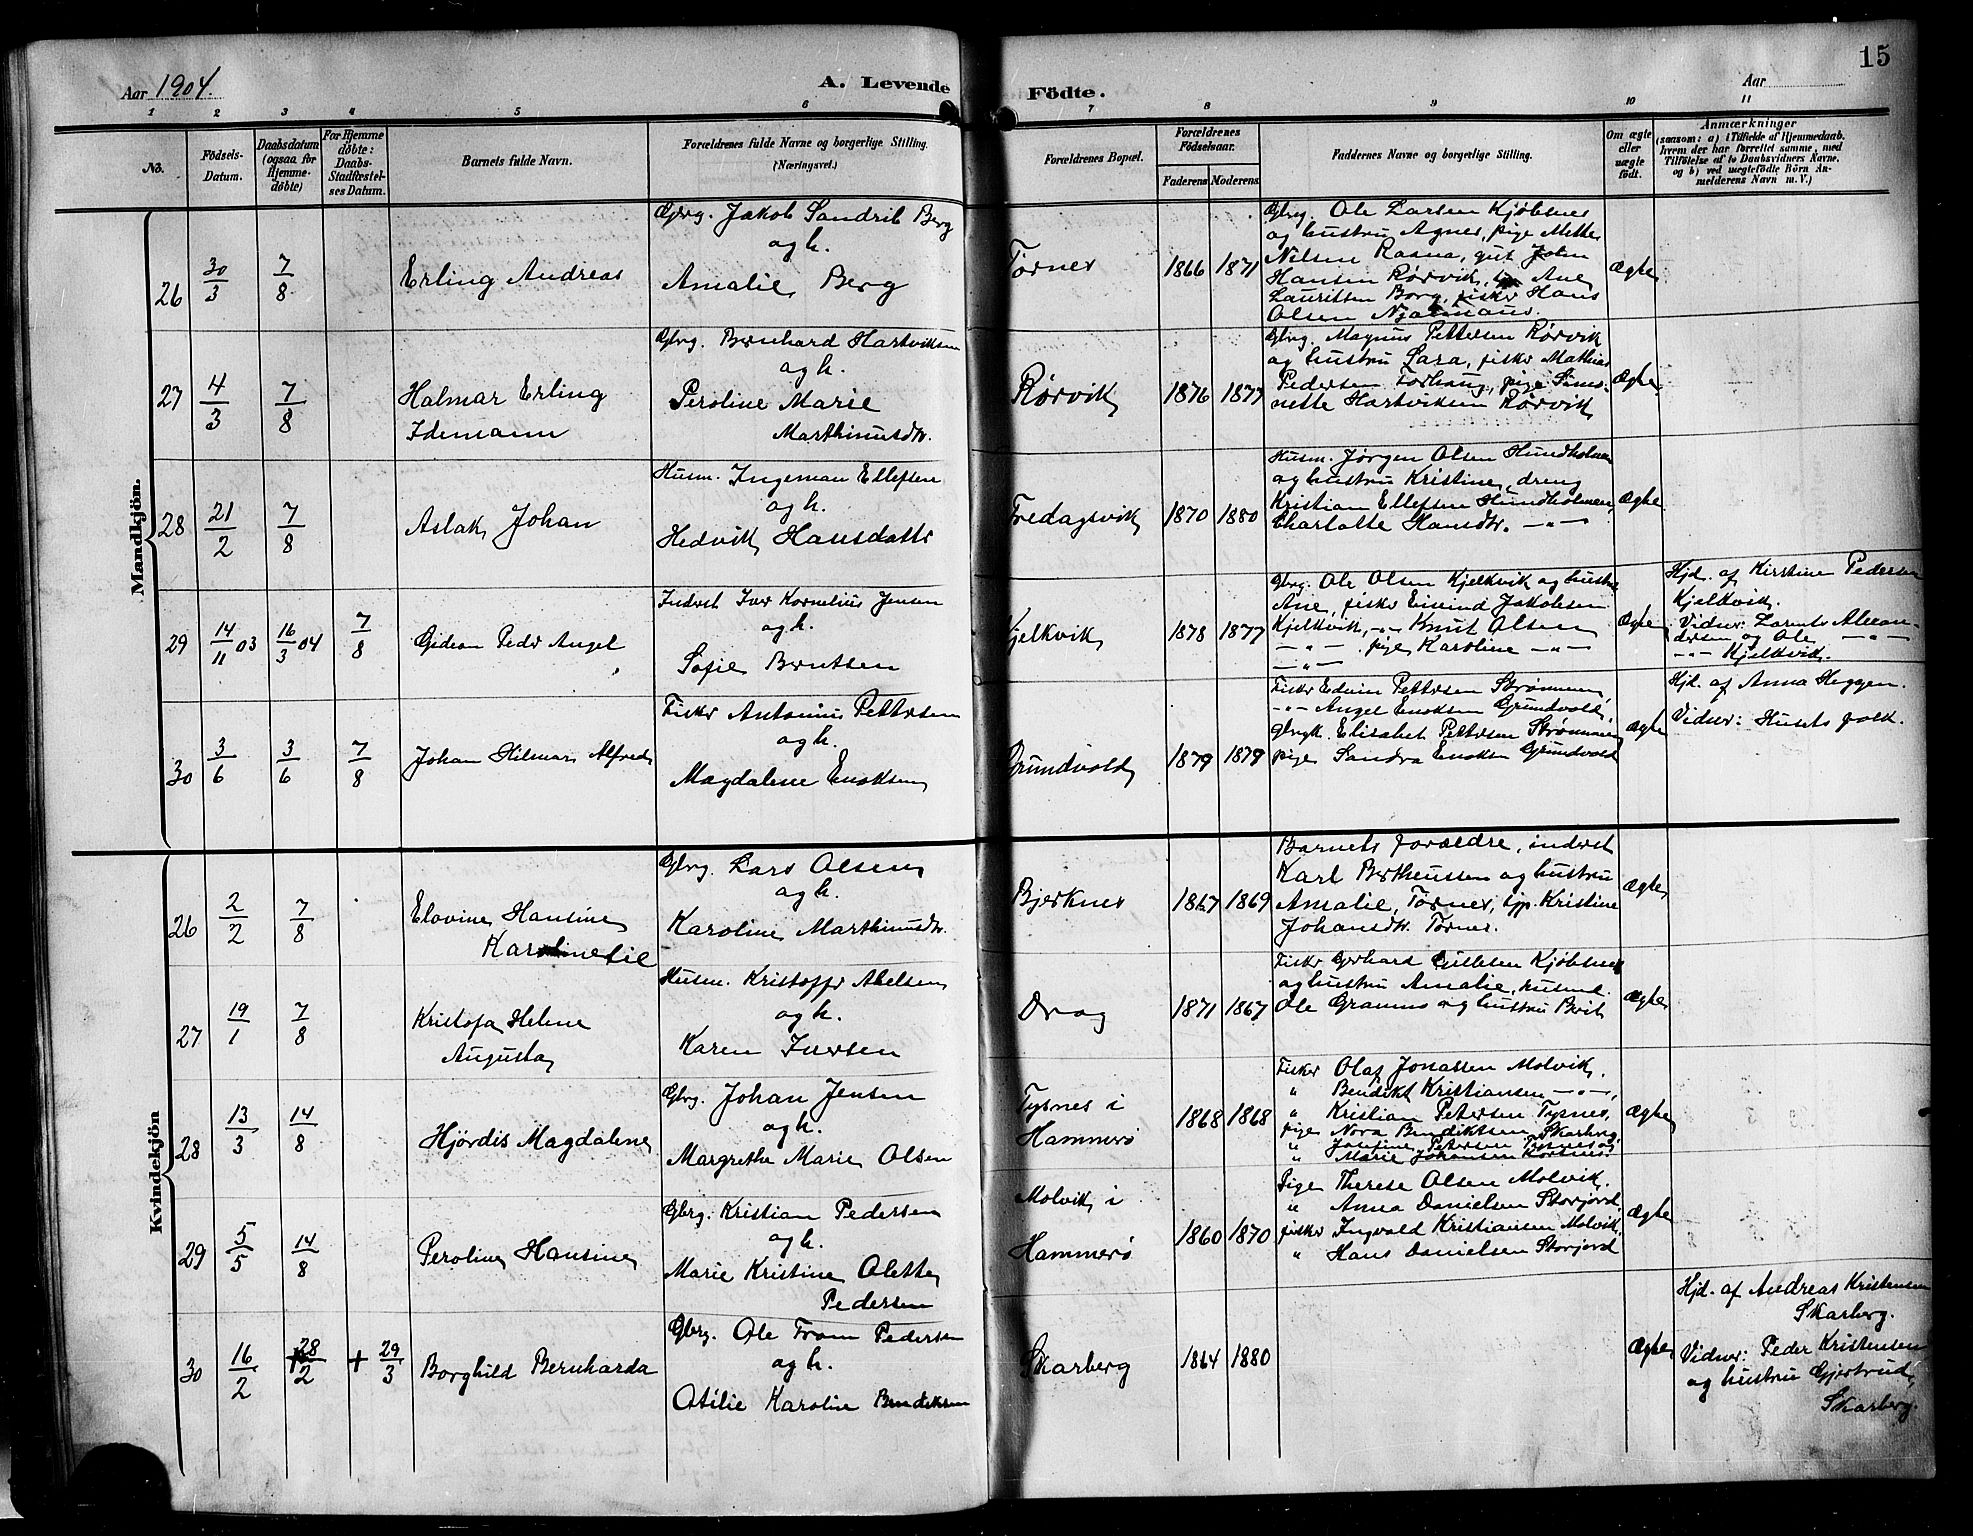 15
Aar 1904.
A. Levende Födte.
Aar
1 2 3 4 5 6 7 8 9 10 11
No.
Födsels-
Datum.
Daabsdatum
(ogsaa for
Hjemme-
döbte)
For Hjemme
döbte:
Daabs-
Stadfæstel-
ses Datum.
Barnets fulde Navn.
Forældrenes fulde Navne og borgerlige Stilling.
(Næringsvei.)
Forældrenes Bopæl.
Forældrenes
Födselsaar.
Faderens Moderens
Faddernes Navne og borgerlige Stilling.
Om ægte
eller
uægte
født.
Anmærkninger
(saasom: a) i Tilfælde af Hjemmedaab.
hvem der har forrettet samme, med
Tilföielse af to Daabsvidners Navne.
og b) ved uægtefödte Börn An-
melderens Navn m. V.)
Mandkjön.
26
30/3
7/8
Erling Andreas
Gbrg. Jakob Sandrib Berg
og h.
Amalie Berg
Tørnes
1866 1871
Gbrg. Ole Larsen Kjøbsnes
og hustru Agnes, pige Mette
Nilsen Rasna, gut John
Hansen Rørvik, Ane
Lauritsen Borg, fisker Hans
Olsen
Ægte
27
4/3
7/8
Halmar Erling
Idemann
Gbrg. Bernhard Hartviksen
og h.
Peroline Marie
Marthinusdtr.
Rørvik
1876 1877
Gbrg. Magnus Pettersen Rørvik
og hustru Sara, fisker Mathias
Pedersen Forhaug, pige Simo-
nette Hartviksen Rørvik
Ægte
28
21/2
7/8
Aslak Johan
Husm. Ingeman Ellefsen
og h.
Hedvik Hansdatter
Fredagsvik
1870 1880
Husm. Jørgen Olsen Hundholmen
og hustru Kristine, dreng
Kristian Ellefsen Hundholmen
Charlotte Hansdtr. — " —
Ægte
29
14/11 03
16/3 04
7/8
Gidion Peder Angel
Inderst Iver Kornelius Jensen
og h.
Sofie Berntsen
Kjelkvik
1878 1877
Gbrg. Ole Olsen Kjelkvik og hustru
Ane, fisker Eivind Jakobsen
Kjelkvik, — " — Knut Olsen
— " — pige Karoline — " —
— " —
Ægte
Hjd. af Kirstine Pedersen
Kjelkvik.
Vidner: Lorents Alexan-
dersen og Ole — " —
— " — Kjelkvik.
30
3/6
3/6
7/8
Johan Hilmar Alfred
Fisker Antonius Pettersen
og h.
Magdalene Enoksen
Grundvold
1879 1879
Fisker Edvin Pettersen Strømmen,
— " — Angel Enoksen Grundvold,
gbrgk. Elisabet Pettersen Strømmen
pige Sandra Enoksen Grundvold
Ægte
Hjd. af Anna Heggen.
Vidner: Husets folk.
Kvindekjön
26
2/2
7/8
Elovine Hansine
Karoline
Gbrg. Lars Olsen
og h.
Karoline Marthinusdtr.
Bjerknes
1867 1869
Barnets forældre, inderst
Karl Bertheussen og hustru
Amalie, Tørnes, tjp. Kristine
Johansdtr. Tørnes.
Ægte
27
19/1
7/8
Kristofa Helene
Augusta
Husm. Kristoffer Abelsen
og h.
Karen Iversen
Drag
1871 1867
Fisker Gerhard Kjøbsnes
og hustru Amalie, husmd.
Ole Gramnes og hustru Berit
Ægte
28
13/3
14/8
Hjördis Magdalene
Gbrg. Johan Jensen
og h.
Margrethe Marie Olsen
Tysnes i
Hammerø
1868 1868
Fisker Olaf Jonassen Molvik,
" Bendikt Kristiansen — " —,
" Kristian Petersen Tysnes,
pige Nora Bendiktsen Skarberg,
" Josefine Petersen Tysnes og
" Marie Johansen Korsnes.
Ægte
29
5/5
14/8
Peroline Hansine
Gbrg. Kristian Pedersen
og h.
Marie Kristine Olette
Pedersen
Molvik i
Hammerø
1860 1870
Pige Therese Olsen Molvik,
" Anna Danielsen Storjord,
fisker Ingvald Kristiansen Molvik,
" Hans Danielsen Storjord
Ægte
30
16/2
28/2
+ 29/3
Borghild Bernharda
Gbrg. Ole From Pedersen
og h.
Otilie Karoline Bendiksen
Skarberg
1864 1880
Ægte
Hjd. af Andreas Kristensen
Skarberg.
Vidner: Peder Kristensen
og hustru Gjertrud,
Skarberg.